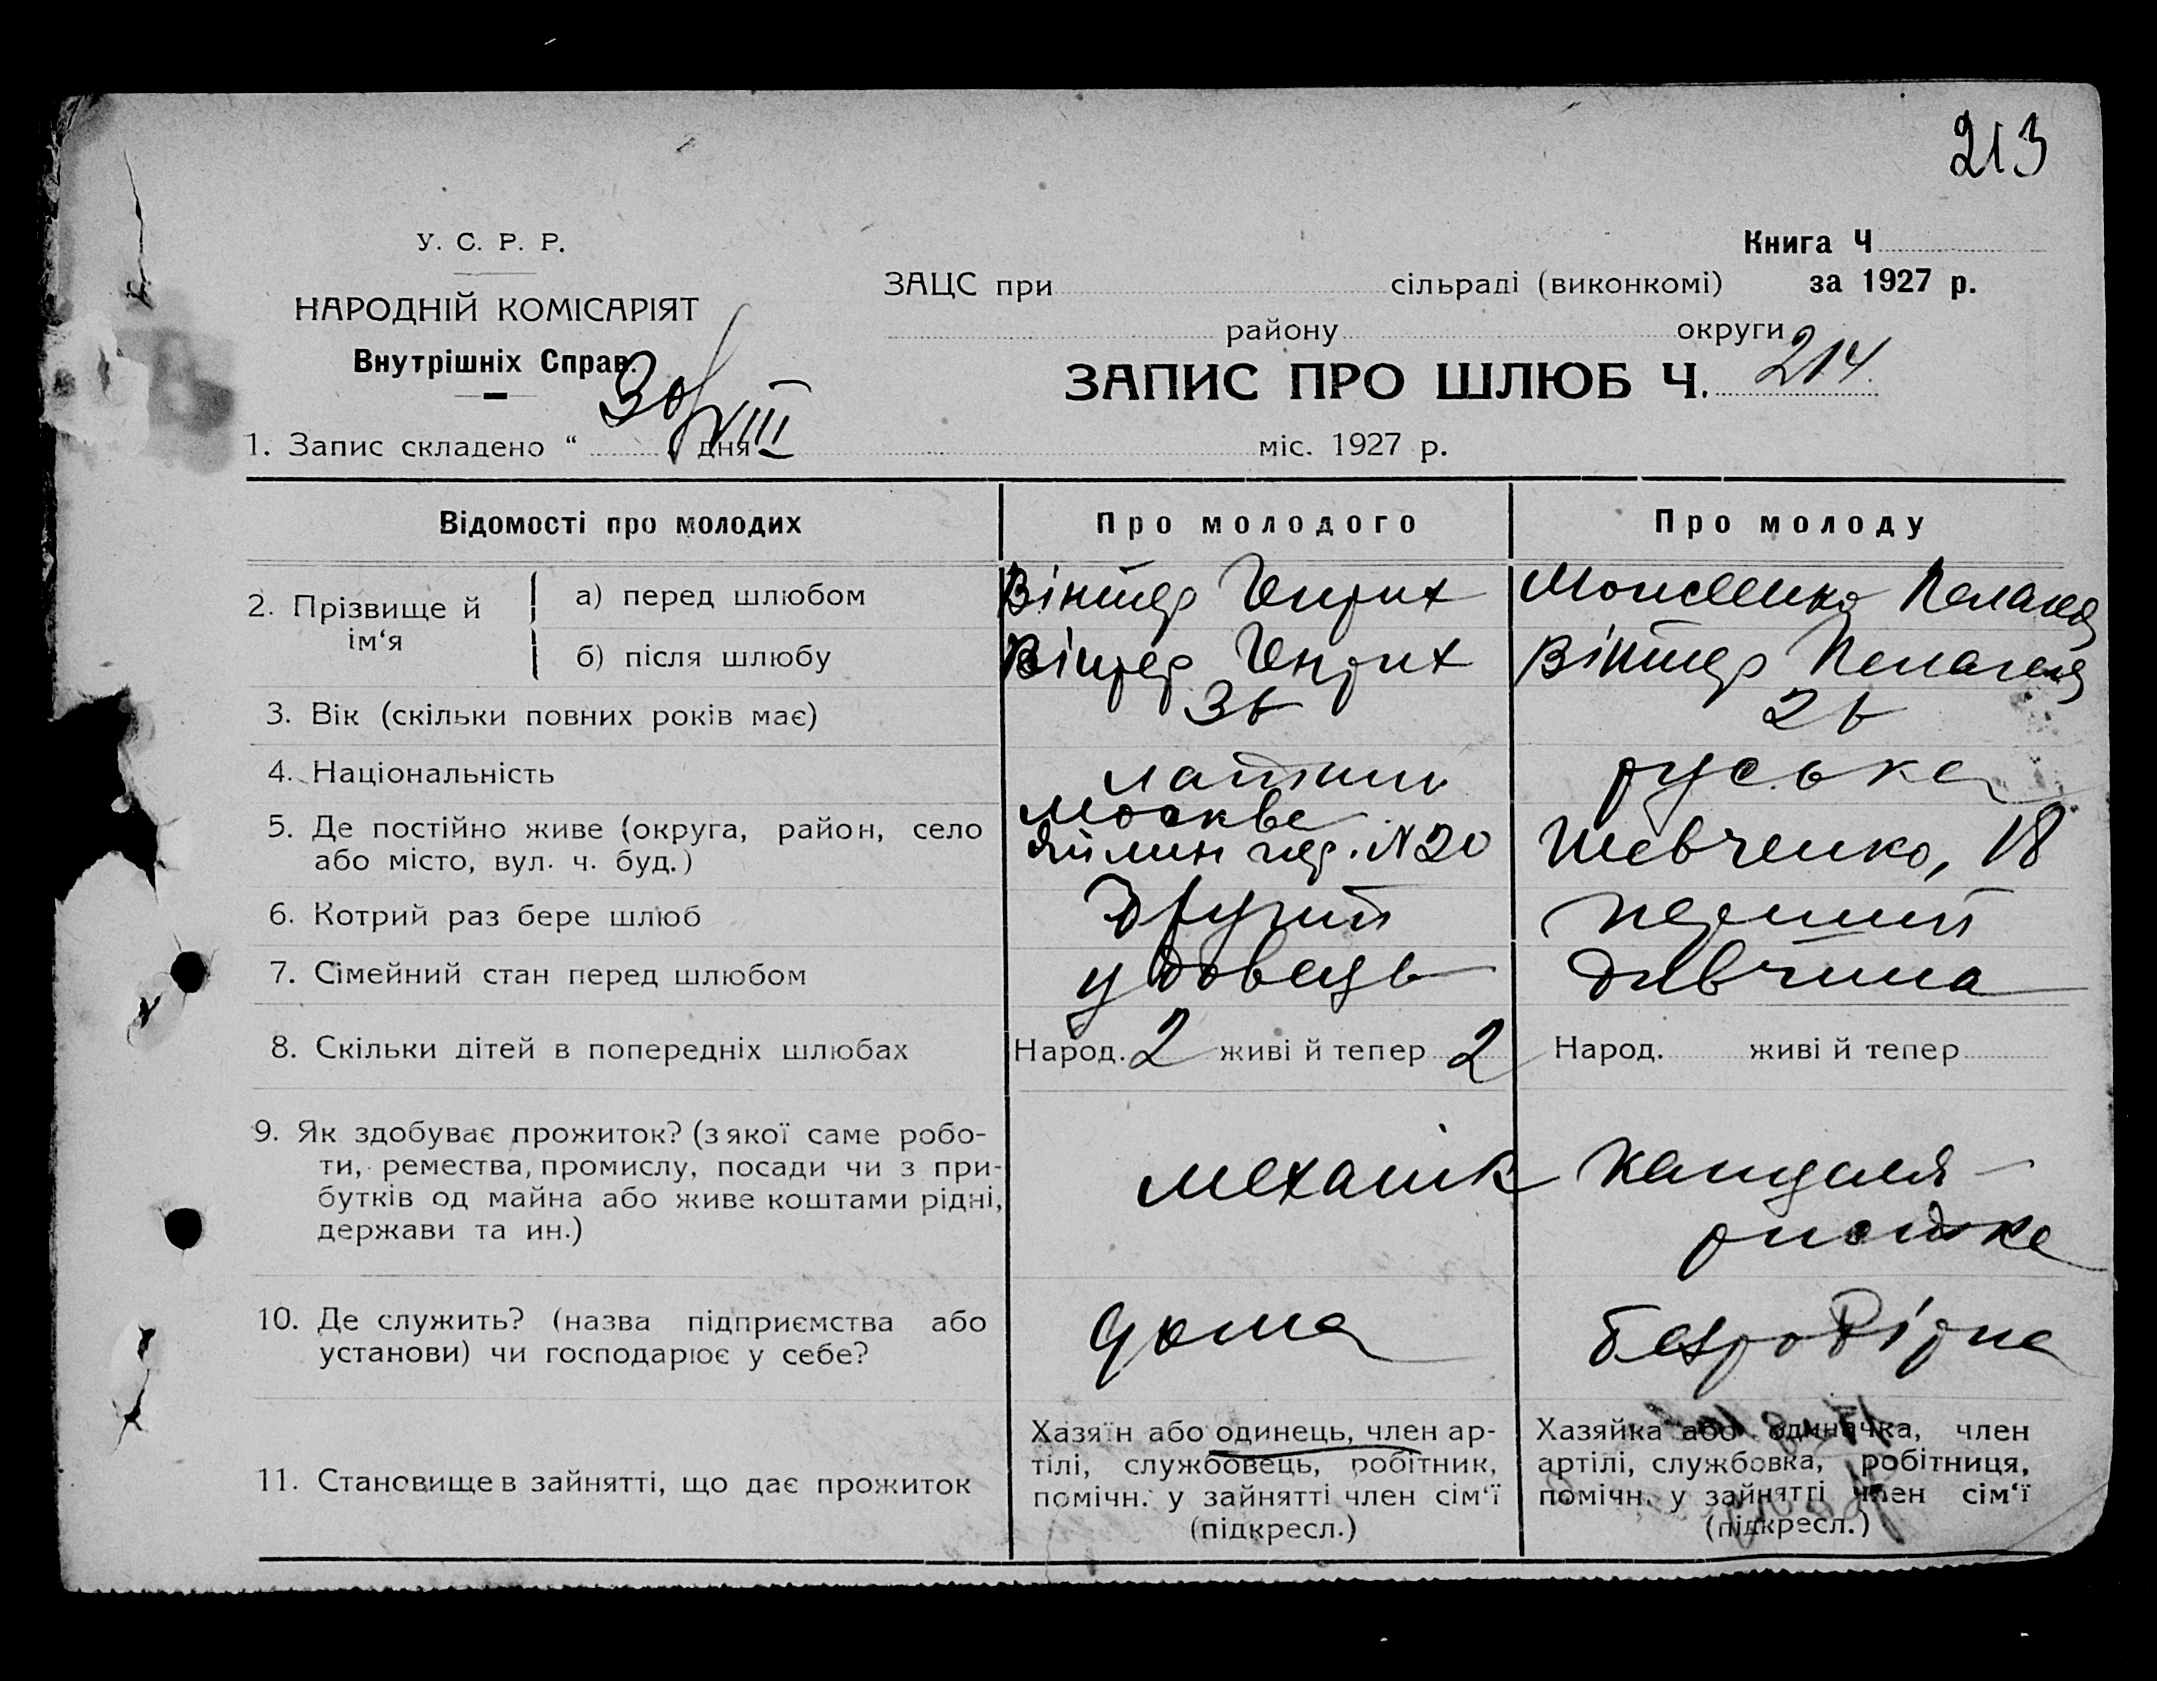 213
У. С. Р. Р.
НАРОДНІЙ КОМІСАРІЯТ
Внутрішніх Справ.
Книга Ч
ЗАЦС при сільраді (виконкомі) за 1927 р.
району округи
ЗАПИС ПРО ШЛЮБ Ч. 214
1. Запис складено “ 30/VIII дня міс. 1927 р.
Відомості про молодих Про молодого Про молоду
2. Прізвище й ім‘я
а) перед шлюбом Вінтер Генрих Пелагея
б) після шлюбу Вінтер Генрих Вінтер Пелагея
3. Вік (скільки повних років має) 36 26
4. Національність руська
5. Де постійно живе (округа, район, село Москва
або місто, вул. ч. буд.) пер. N 20 Шевченко, 18
6. Котрий раз бере шлюб Другий перший
7. Сімейний стан перед шлюбом удовець дивчина
8. Скільки дітей в попередніх шлюбах Народ. 2 живі й тепер 2 Народ. живі й тепер
9. Як здобуває прожиток? (з якої саме робо-
ти, ремества, промислу, посади чи з при- механік канцеля-
бутків од майна або живе коштами рідні,
держави та ин.) ристка
10. Де служить? (назва підприємства або дома безробірна
установи) чи господарює у себе?
11. Становище в зайнятті, що дає прожиток
Хазяїн або одинець, член ар-
тілі, службовець, робітник,
помічн. у зайнятті член сім‘ї
(підкресл.)
Хазяйка або одиначка, член
артілі, службовка, робітниця,
помічн. у зайнятті член сім‘ї
(підкресл.)